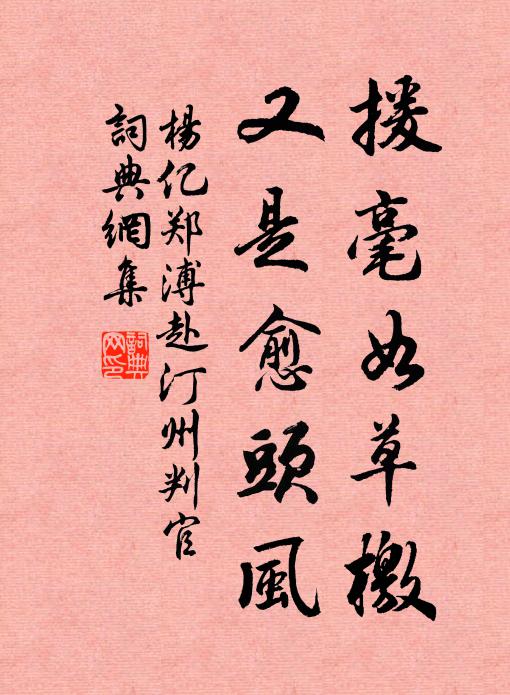 援毫如草檄
又是愈頭風
楊亿郑溥赴汀州判官
詞典網集
詞典網印